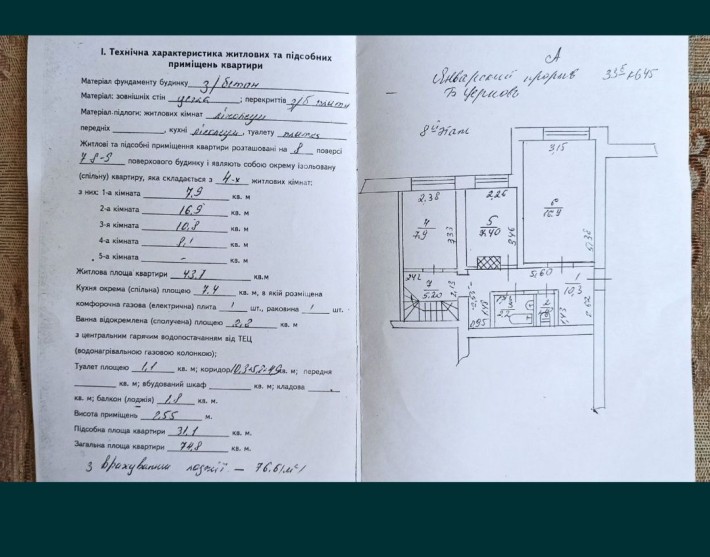 I. Технічна характеристика житлових та підсобних
приміщень квартири
Матеріал фундаменту будинку з/бетон
Матеріал: зовнішніх стін цегла ; перекриттів з/б плити
Матеріал підлоги: житлових кімнат лінолеум
передніх , кухні лінолеум, туалету плитка
Житлові та підсобні приміщення квартири розташовані на 8 поверсі
7 8-9 поверхового будинку і являють собою окрему ізольовану
(спільну) квартиру, яка складається з 4-х житлових кімнат:
з них: 1-а кімната 7,9 кв. м
2-а кімната 16,9 кв. м
3-я кімната 10,8 кв. м
4-а кімната 8,1 кв. м
5-а кімната - кв. м
Житлова площа квартири 43,7 кв.м
Кухня окрема (спільна) площею 7,4 кв. м, в якій розміщена
комфорочна газова (електрична) плита 1 шт., раковина 1 шт.
Ванна відокремлена (сполучена) площею 2,8 кв. м
з центральним гарячим водопостачанням від ТЕЦ
(водонагрівальною газовою колонкою);
Туалет площею 1,1 кв. м; коридор кв. м; передня
кв. м; вбудований шкаф кв. м; кладова
кв. м; балкон (лоджія) 1,8 кв. м
Висота приміщень 2,55 м.
Підсобна площа квартири 31,1 кв. м.
Загальна площа квартири 74,8 кв. м.
з врахуванням лоджії – 76.6 м²
А
Январский прорыв
8й этаж
3,15
2,38
2,26
4
7,9
5
7,40
6
16,9
3,33
3,46
5,38
2,42
5,60
1
10,3
7
5,20
2,13
1,43
0,95
1,43
2,02